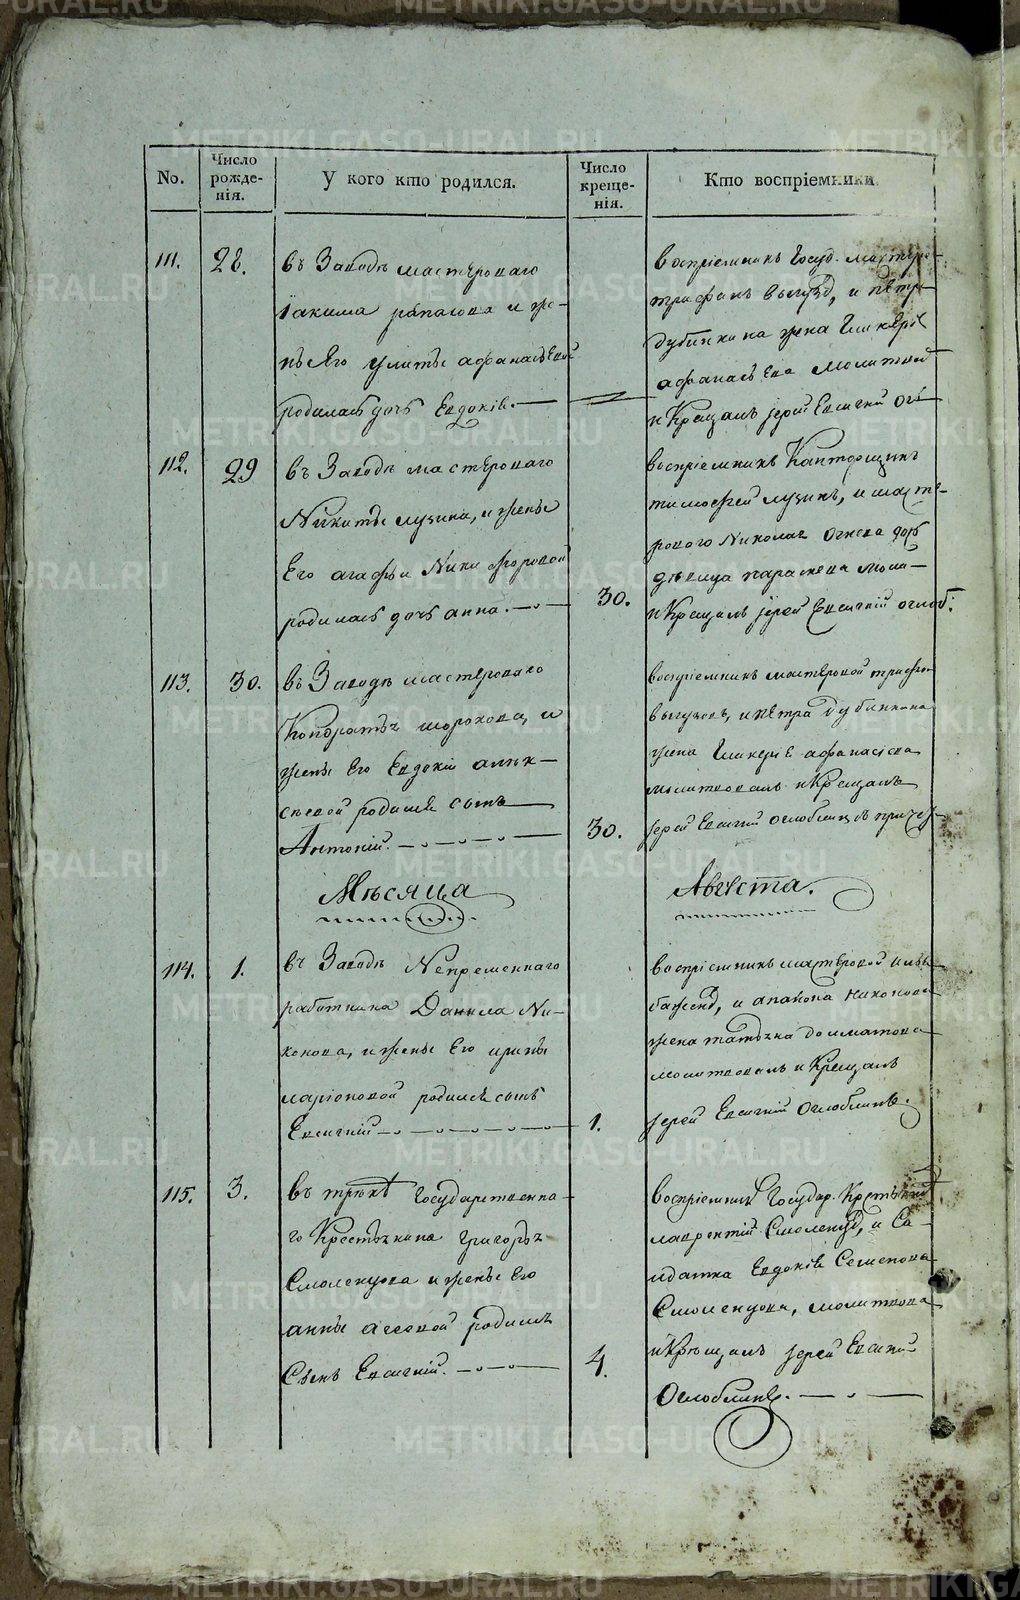 No.
Число рожде-
нія.
У кого кто родился.
Число креще-
нія.
Кто воспріемники.
111.
28.
въ Заводѣ мастероваго
Іакима и же-
нѣ Его Улитѣ афанасьевой
родилась дочь Евдокія.
воспріемникъ Госуд. мастеро-
трифонъ и петра
дубинкина жена Гликерія
афанасьева молитвой
и Крещалъ іерей Евсигній Огл
112.
29
въ Заводѣ мастероваго
Никиты лузина, и жены
Его агафьи Никифоровой
родилась дочь анна.
30.
воспріемникъ Канторщикъ
тимофей лузинъ, и масте-
роваго Николая дочь
дѣвица параскева моли-
и Крещалъ іерей Евсигній оглоб:
113.
30.
въ Заводѣ мастероваго
Кондратья шорохова, и
жены Его Евдокіи алек-
сѣевой родился сынъ
Антоній.
30.
воспріемникъ мастеровой трифон
и петра Дубинкина
жена Гликерія афанасіева
молитвовалъ и Крещалъ
іерей Евсигній Оглоблинъ
Мѣсяца
Августа.
114.
1.
въ Заводѣ Непременнаго
работника Данила Ни-
конова, и жены Его ирины
ларіоновой родился сынъ
Евсигній
1.
воспріемникъ мастеровой
и
жена татьяна
молитвовалъ и Крещалъ
іерей Евсигній Оглоблинъ.
115.
3.
въ Государственна-
го Крестьянина Григорья
Смоленцова и жены Его
анны родился
Сынъ Евсигній.
4.
воспріемникъ Государ. Крестьянинъ
лаврентій Смоленцовъ, и Са-
лдатка Евдокія Семенова
Смоленцова, молитвова
и Крещалъ іерей Евсигній
Оглоблинъ.
METRIKI.GASO-URAL.RU